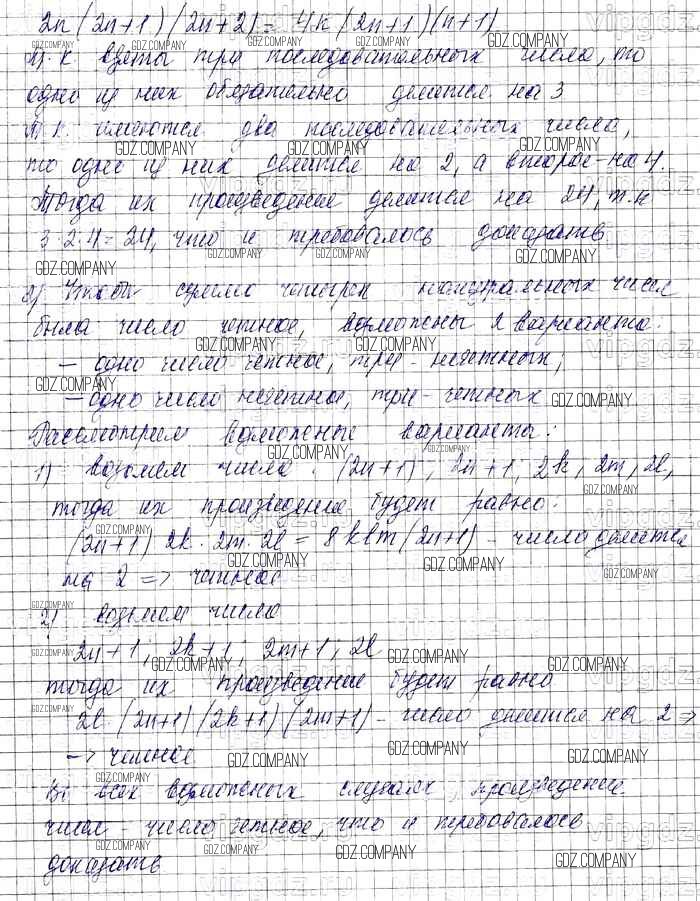 2n(2n+1)(2n+2)=4n(2n+1)(n+1)
Т.к взяты три последовательных числа, то
одно из них обязательно делится на 3
Т.к. имеются два последовательных числа,
то одно из них делится на 2, а второе - на 4.
Тогда их произведение делится на 24, т.к
3·2·4=24, что и требовалось доказать
2) Чтобы сумма четырех натуральных чисел
была число четное, возможны 2 варианта:
- одно число четное, три - нечетных;
- одно число нечетное, три - четных
Рассмотрим возможные варианты:
1) возьмем числа: (2n+1); 2n+1; 2k, 2m, 2l,
тогда их произведение будет равно:
(2n+1) 2k · 2m · 2l = 8klm(2n+1) - число делится
на 2 => четное
2) возьмем числа
2n+1; 2k+1; 2m+1; 2l
тогда их произведение будет равно
2l · (2n+1)(2k+1)(2m+1) - число делится на 2 =>
-> четное
Во всех возможных случаях, произведение
чисел - число четное, что и требовалось
доказать
GDZ.COMPANY
vipgdz.ru